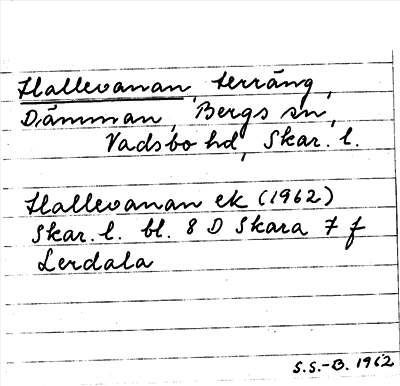 Hallevanan, terräng,
Dämman, Bergs sn,
Vadsbo hd, Skar. l.
Hallevanan ek (1962)
Skar. l. bl. 8 D Skara 7 f
Lerdala
S.S.-B. 1962